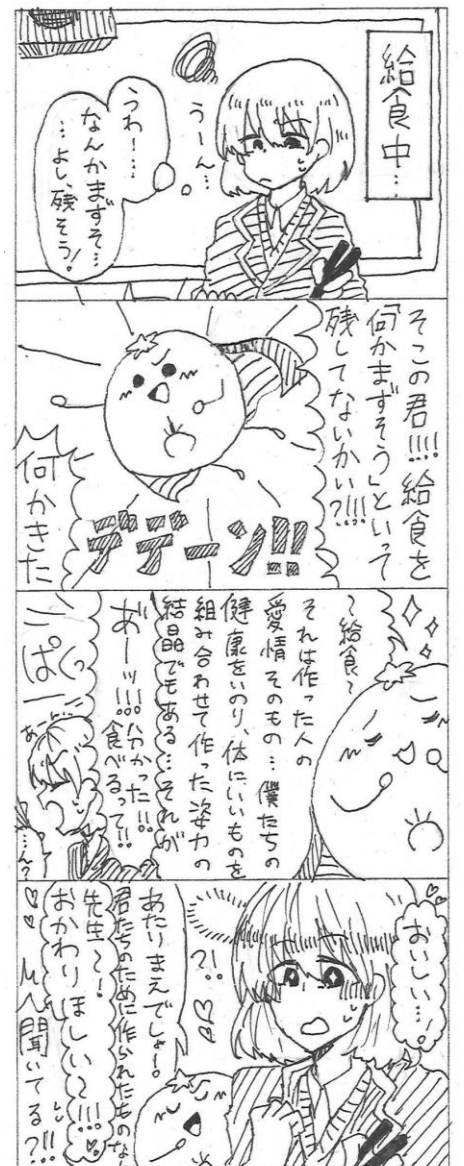 給食中…
うーん…
うわー…
なんかまずそ…
…よし、残そう!
そこの君!!!!給食を
「何かまずそう」といって
残してないかい?!!!
デデーン!!
何かきた
〜給食〜
それは作った人の
愛情そのもの…僕たちの
健康をいのり、体にいいものを
組み合わせて作った姿力の
結晶でもある…それが
あ"ーッ!!!分かった!!
食べるって!!
ぱくっ
あーん
…ん?
おいしい…!
?!
あたりまえでしょ。
君たちのために作られたものな
先生〜!
おかわりほしい〜!!!
聞いてる?!!